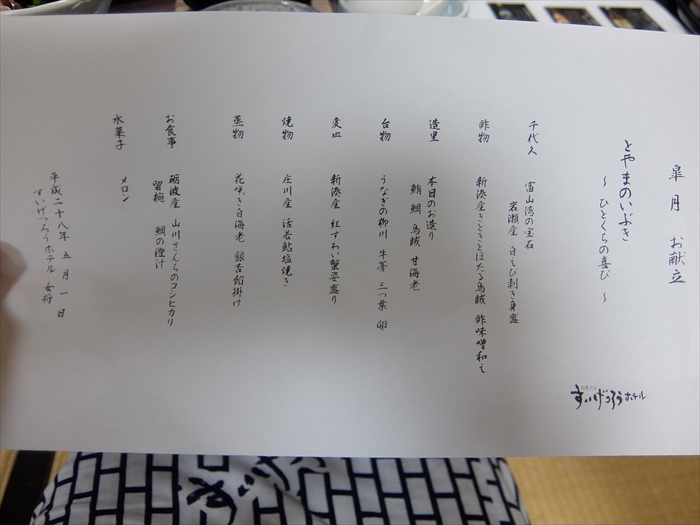 皐月 お献立
とやまのいぶき
～ ひとくちの喜び ～
千代久 富山湾の宝石
岩瀬産 白えび剥き身盛
酢物 新湊産きときとほたる烏賊 酢味噌和え
造里 本日のお造り
鮪 鯛 烏賊 甘海老
台物 うなぎの柳川 牛蒡 三つ葉 卵
変皿 新湊産 紅ずわい蟹姿盛り
焼物 庄川産 活若鮎塩焼き
蒸物 花咲き白海老 銀杏餡掛け
お食事 砺波産 山川さんちのコシヒカリ
留椀 鯛の潮汁
水菓子 メロン
平成二十八年 五月 一日
すいげつろうホテル 女将
すいげつろうホテル